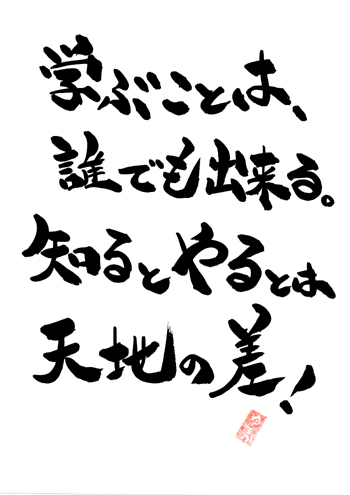 学ぶことは、
誰でも出来る。
知るとやるとは
天地の差!